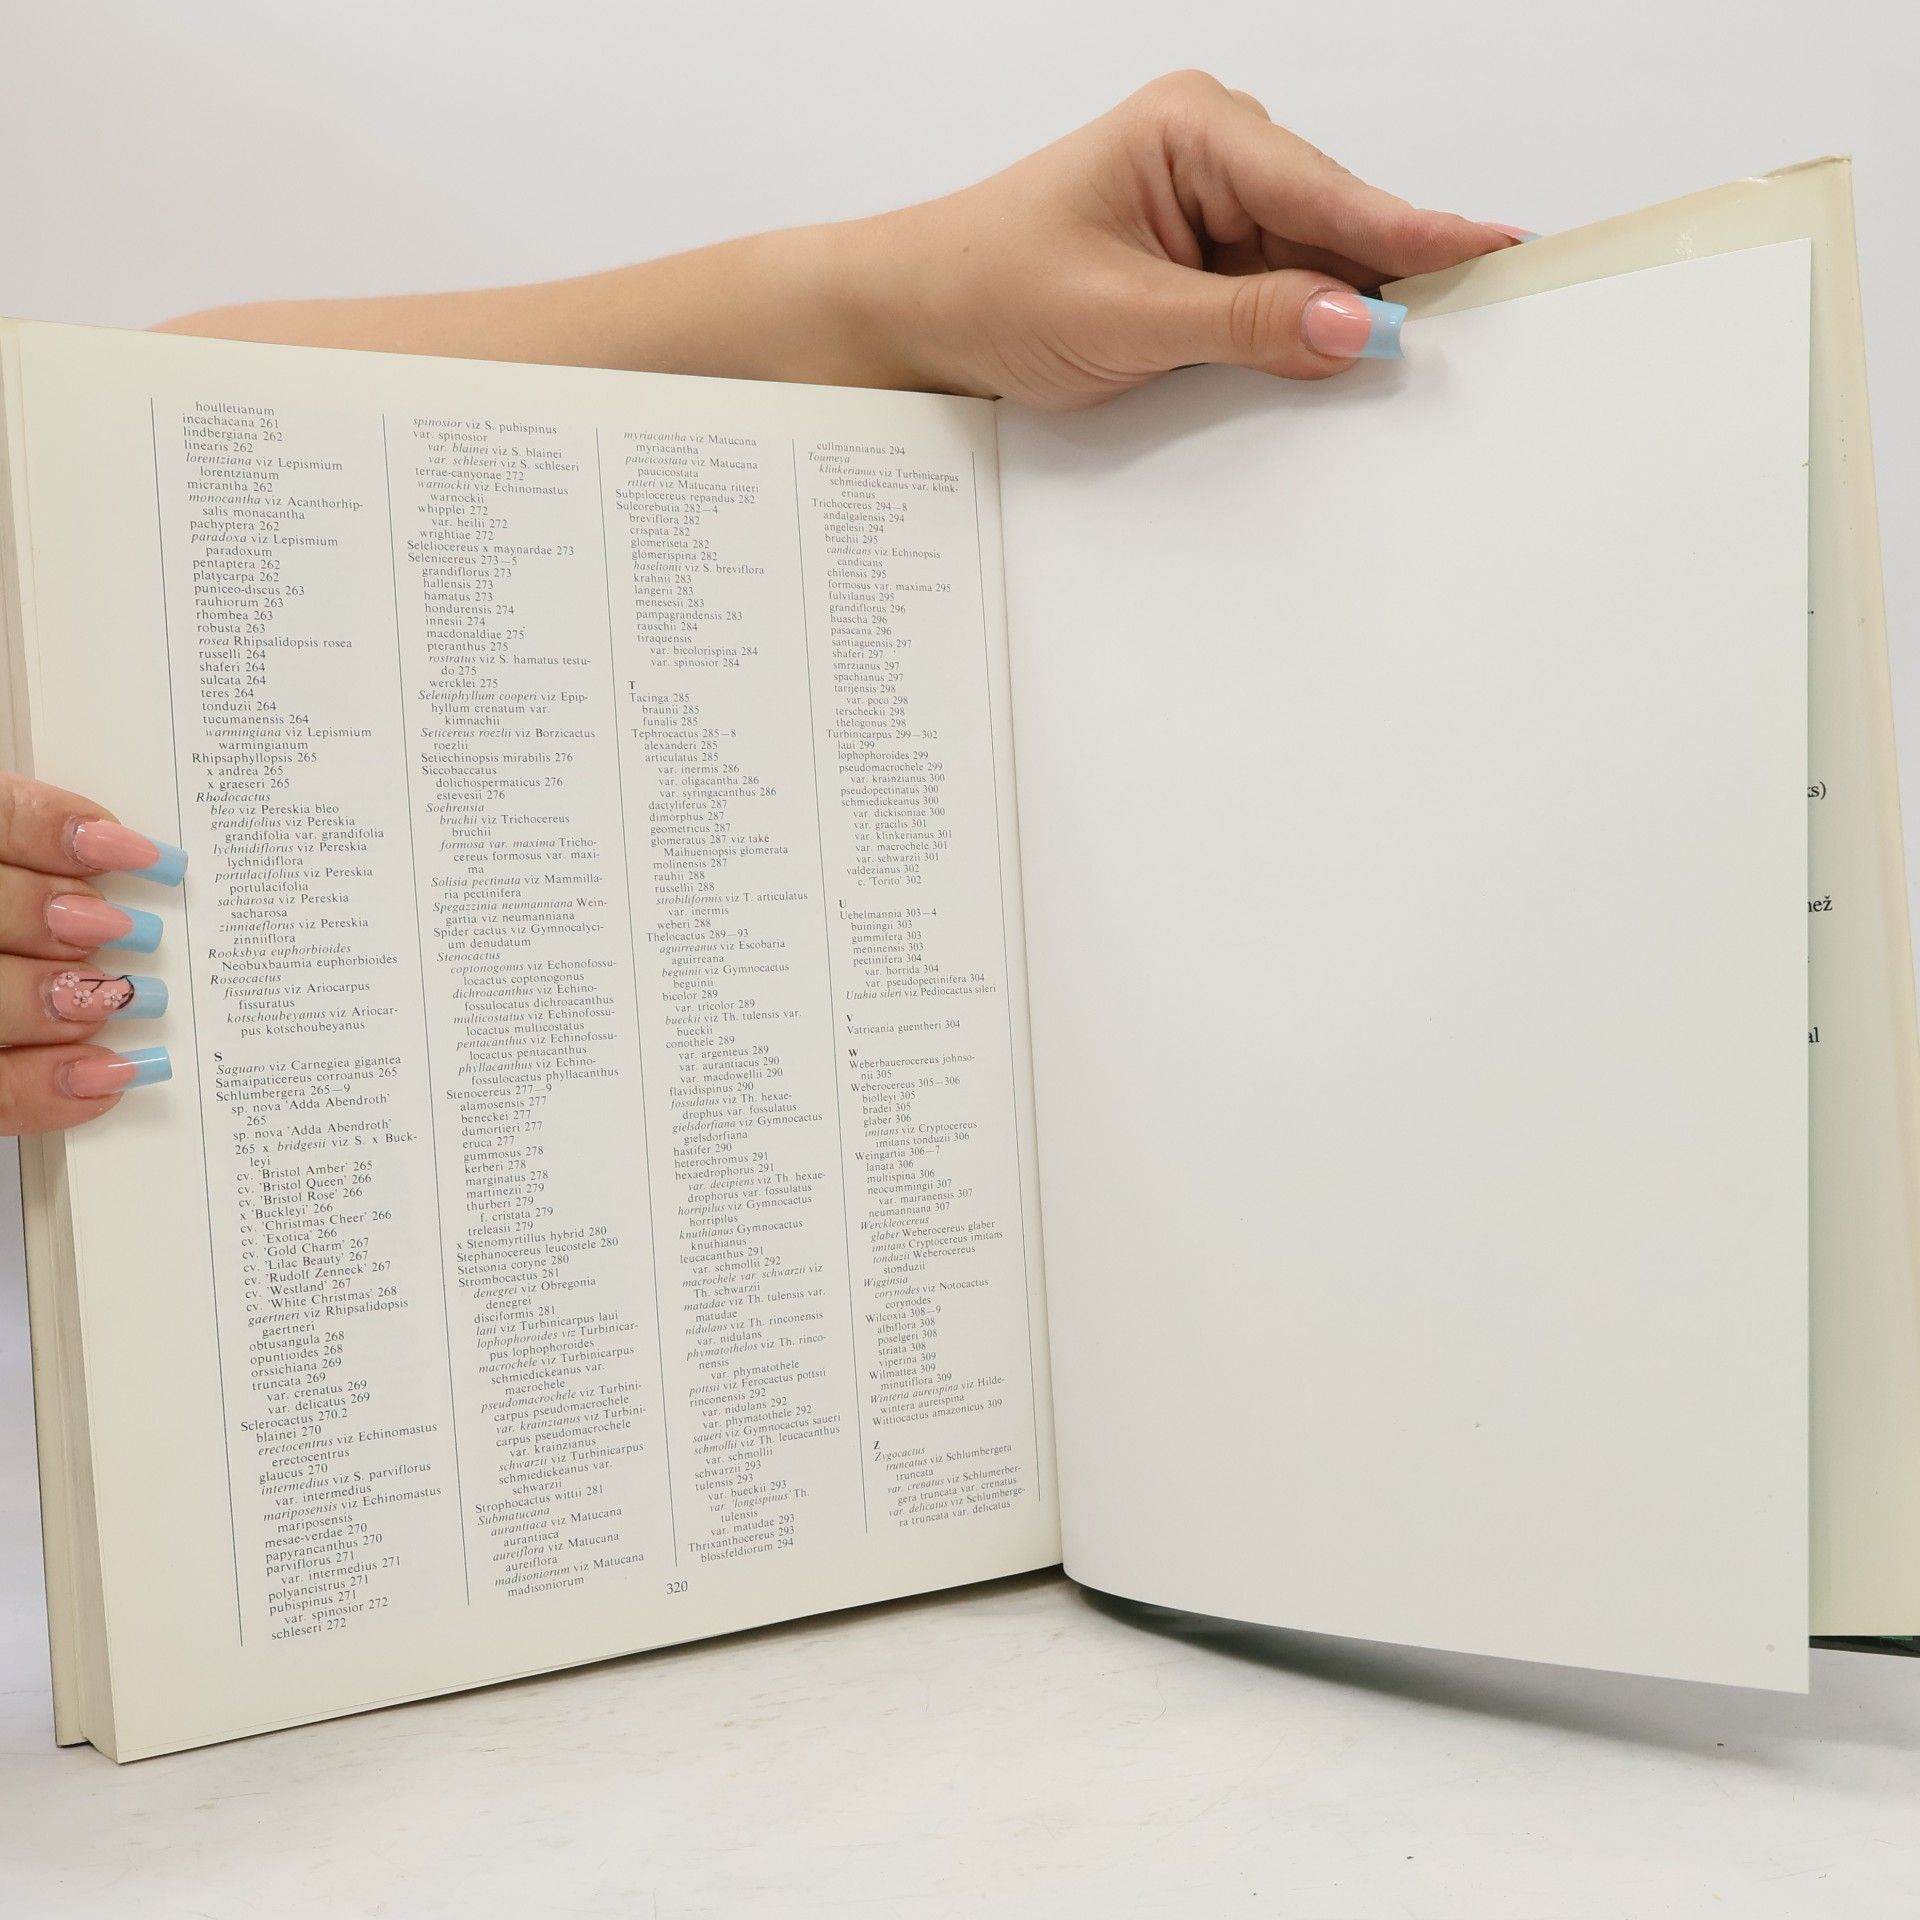 houlletianum
incachacana 261
lindbergiana 262
linearis 262
lorentziana viz Lepismium
lorentzianum
micrantha 262
monocantha viz Acanthorhip-
salis monacantha
pachyptera 262
paradoxa viz Lepismium
paradoxum
pentaptera 262
platycarpa 262
puniceo-discus 263
rauhiorum 263
rhombea 263
robusta 263
rosea Rhipsalidopsis rosea
russelli 264
shaferi 264
sulcata 264
teres 264
tonduzii 264
tucumanensis 264
warmingiana viz Lepismium
warmingianum
Rhipsaphyllopsis 265
x andrea 265
x graeseri 265
Rhodocactus
bleo viz Pereskia bleo
grandifolius viz Pereskia
grandifolia var. grandifolia
lychnidiflorus viz Pereskia
lychnidiflora
portulacifolius viz Pereskia
portulacifolia
sacharosa viz Pereskia
sacharosa
zinniaeflorus viz Pereskia
zinniiflora
Rooksbya euphorbioides
Neobuxbaumia euphorbioides
Roseocactus
fissuratus viz Ariocarpus
fissuratus
kotschoubeyanus viz Ariocar-
pus kotschoubeyanus
S
Saguaro viz Carnegiea gigantea
Samaipaticereus corroanus 265
Schlumbergera 265—9
sp. nova 'Adda Abendroth'
265
sp. nova 'Adda Abendroth'
265 x bridgesii viz S. x Buck-
leyi
cv. 'Bristol Amber' 265
cv. 'Bristol Queen' 266
cv. 'Bristol Rose' 266
x 'Buckleyi' 266
cv. 'Christmas Cheer' 266
cv. 'Exotica' 266
cv. 'Gold Charm' 267
cv. 'Lilac Beauty' 267
cv. 'Rudolf Zenneck' 267
cv. 'Westland' 267
cv. 'White Christmas' 268
gaertneri viz Rhipsalidopsis
gaertneri
obtusangula 268
opuntioides 268
orssichiana 269
truncata 269
var. crenatus 269
var. delicatus 269
Sclerocactus 270.2
blainei 270
erectocentrus viz Echinomastus
erectocentrus
glaucus 270
intermedius viz S. parviflorus
var. intermedius
mariposensis viz Echinomastus
mariposensis
mesae-verdae 270
papyrancanthus 270
parviflorus 271
var. intermedius 271
polyancistrus 271
pubispinus 271
var. spinosior 272
schleseri 272
spinosior viz S. pubispinus
var. spinosior
var. blainei viz S. blainei
var. schleseri viz S. schleseri
terrae-canyonae 272
warnockii viz Echinomastus
warnockii
whipplei 272
var. heilii 272
wrightiae 272
Seleliocereus x maynardae 273
Selenicereus 273—5
grandiflorus 273
hallensis 273
hamatus 273
hondurensis 274
innesii 274
macdonaldiae 275
pteranthus 275
rostratus viz S. hamatus testu-
do 275
wercklei 275
Seleniphyllum cooperi viz Epip-
hyllum crenatum var.
kimnachii
Seticereus roezlii viz Borzicactus
roezlii
Setiechinopsis mirabilis 276
Siccobaccatus
dolichospermaticus 276
estevesii 276
Soehrensia
bruchii viz Trichocereus
bruchii
formosa var. maxima Tricho-
cereus formosus var. maxi-
ma
Solisia pectinata viz Mammilla-
ria pectinifera
Spegazzinia neumanniana Wein-
gartia viz neumanniana
Spider cactus viz Gymnocalyci-
um denudatum
Stenocactus
coptonogonus viz Echonofossu-
locactus coptonogonus
dichroacanthus viz Echino-
fossulocatus dichroacanthus
multicostatus viz Echinofossu-
locactus multicostatus
pentacanthus viz Echinofossu-
locactus pentacanthus
phyllacanthus viz Echino-
fossulocactus phyllacanthus
Stenocereus 277—9
alamosensis 277
beneckei 277
dumortieri 277
eruca 277
gummosus 278
kerberi 278
marginatus 278
martinezii 279
thurberi 279
f. cristata 279
treleasii 279
x Stenomyrtillus hybrid 280
Stephanocereus leucostele 280
Stetsonia coryne 280
Strombocactus 281
denegrei viz Obregonia
denegrei
disciformis 281
lani viz Turbinicarpus laui
lophophoroides viz Turbinicar-
pus lophophoroides
macrochele viz Turbinicarpus
schmiedickeanus var.
macrochele
pseudomacrochele viz Turbini-
carpus pseudomacrochele
var. krainzianus viz Turbini-
carpus pseudomacrochele
var. krainzianus
schwarzii viz Turbinicarpus
schmiedickeanus var.
schwarzii
Strophocactus wittii 281
Submatucana
aurantiaca viz Matucana
aurantiaca
aureiflora viz Matucana
aureiflora
madisoniorum viz Matucana
madisoniorum
myriacantha viz Matucana
myriacantha
paucicostata viz Matucana
paucicostata
ritteri viz Matucana ritteri
Subpilocereus repandus 282
Sulcorebutia 282—4
breviflora 282
crispata 282
glomeriseta 282
glomerispina 282
haseltonii viz S. breviflora
krahnii 283
langerii 283
menesesii 283
pampagrandensis 283
rauschii 284
tiraquensis
var. bicolorispina 284
var. spinosior 284
T
Tacinga 285
braunii 285
funalis 285
Tephrocactus 285—8
alexanderi 285
articulatus 285
var. inermis 286
var. oligacantha 286
var. syringacanthus 286
dactyliferus 287
dimorphus 287
geometricus 287
glomeratus 287 viz také
Maihueniopsis glomerata
molinensis 287
rauhii 288
russellii 288
strobiliformis viz T. articulatus
var. inermis
weberi 288
Thelocactus 289—93
aguirreanus viz Escobaria
aguirreana
beguinii viz Gymnocactus
beguinii
bicolor 289
var. tricolor 289
bueckii viz Th. tulensis var.
bueckii
conothele 289
var. argenteus 289
var. aurantiacus 290
var. macdowellii 290
flavidispinus 290
fossulatus viz Th. hexae-
drophus var. fossulatus
gielsdorfiana viz Gymnocactus
gielsdorfiana
hastifer 290
heterochromus 291
hexaedrophorus 291
var. decipiens viz Th. hexae-
drophorus var. fossulatus
horripilus viz Gymnocactus
horripilus
knuthianus Gymnocactus
knuthianus
leucacanthus 291
var. schmollii 292
macrochele var. schwarzii viz
Th. schwarzii
matadae viz Th. tulensis var.
matudae
nidulans viz Th. rinconensis
var. nidulans
phymatothelos viz Th. rinco-
nensis
var. phymatothele
pottsii viz Ferocactus pottsii
rinconensis 292
var. nidulans 292
var. phymatothele 292
saueri viz Gymnocactus saueri
schmollii viz Th. leucacanthus
var. schmollii
schwarzii 293
tulensis 293
var. bueckii 293
var. 'longispinus' Th.
tulensis
var. matudae 293
Thrixanthocereus 293
blossfeldiorum 294
cullmannianus 294
Toumeya
klinkerianus viz Turbinicarpus
schmiedickeanus var. klink-
erianus
Trichocereus 294—8
andalgalensis 294
angelesii 294
bruchii 295
candicans viz Echinopsis
candicans
chilensis 295
formosus var. maxima 295
fulvilanus 295
grandiflorus 296
huascha 296
pasacana 296
santiaguensis 297
shaferi 297
smrzianus 297
spachianus 297
tarijensis 298
var. poco 298
terscheckii 298
thelogonus 298
Turbinicarpus 299—302
laui 299
lophophoroides 299
pseudomacrochele 299
var. krainzianus 300
pseudopectinatus 300
schmiedickeanus 300
var. dickisoniae 300
var. gracilis 301
var. klinkerianus 301
var. macrochele 301
var. schwarzii 301
valdezianus 302
c. 'Torito' 302
U
Uebelmannia 303—4
buiningii 303
gummifera 303
meninensis 303
pectinifera 304
var. horrida 304
var. pseudopectinifera 304
Utahia sileri viz Pediocactus sileri
V
Vatricania guentheri 304
W
Weberbauerocereus johnso-
nii 305
Weberocereus 305—306
biolleyi 305
bradei 305
glaber 306
imitans viz Cryptocereus
imitans tonduzii 306
Weingartia 306—7
lanata 306
multispina 306
neocummingii 307
var. mairanensis 307
neumanniana 307
Werckleocereus
glaber Weberocereus glaber
imitans Cryptocereus imitans
tonduzii Weberocereus
stonduzii
Wigginsia
corynodes viz Notocactus
corynodes
Wilcoxia 308—9
albiflora 308
poselgeri 308
striata 308
viperina 309
Wilmattea 309
minutiflora 309
Winteria aureispina viz Hilde-
wintera aureispina
Wittiocactus amazonicus 309
Z
Zygocactus
truncatus viz Schlumbergera
truncata
var. crenatus viz Schlumerber-
gera truncata var. crenatus
var. delicatus viz Schlumberge-
ra truncata var. delicatus
320